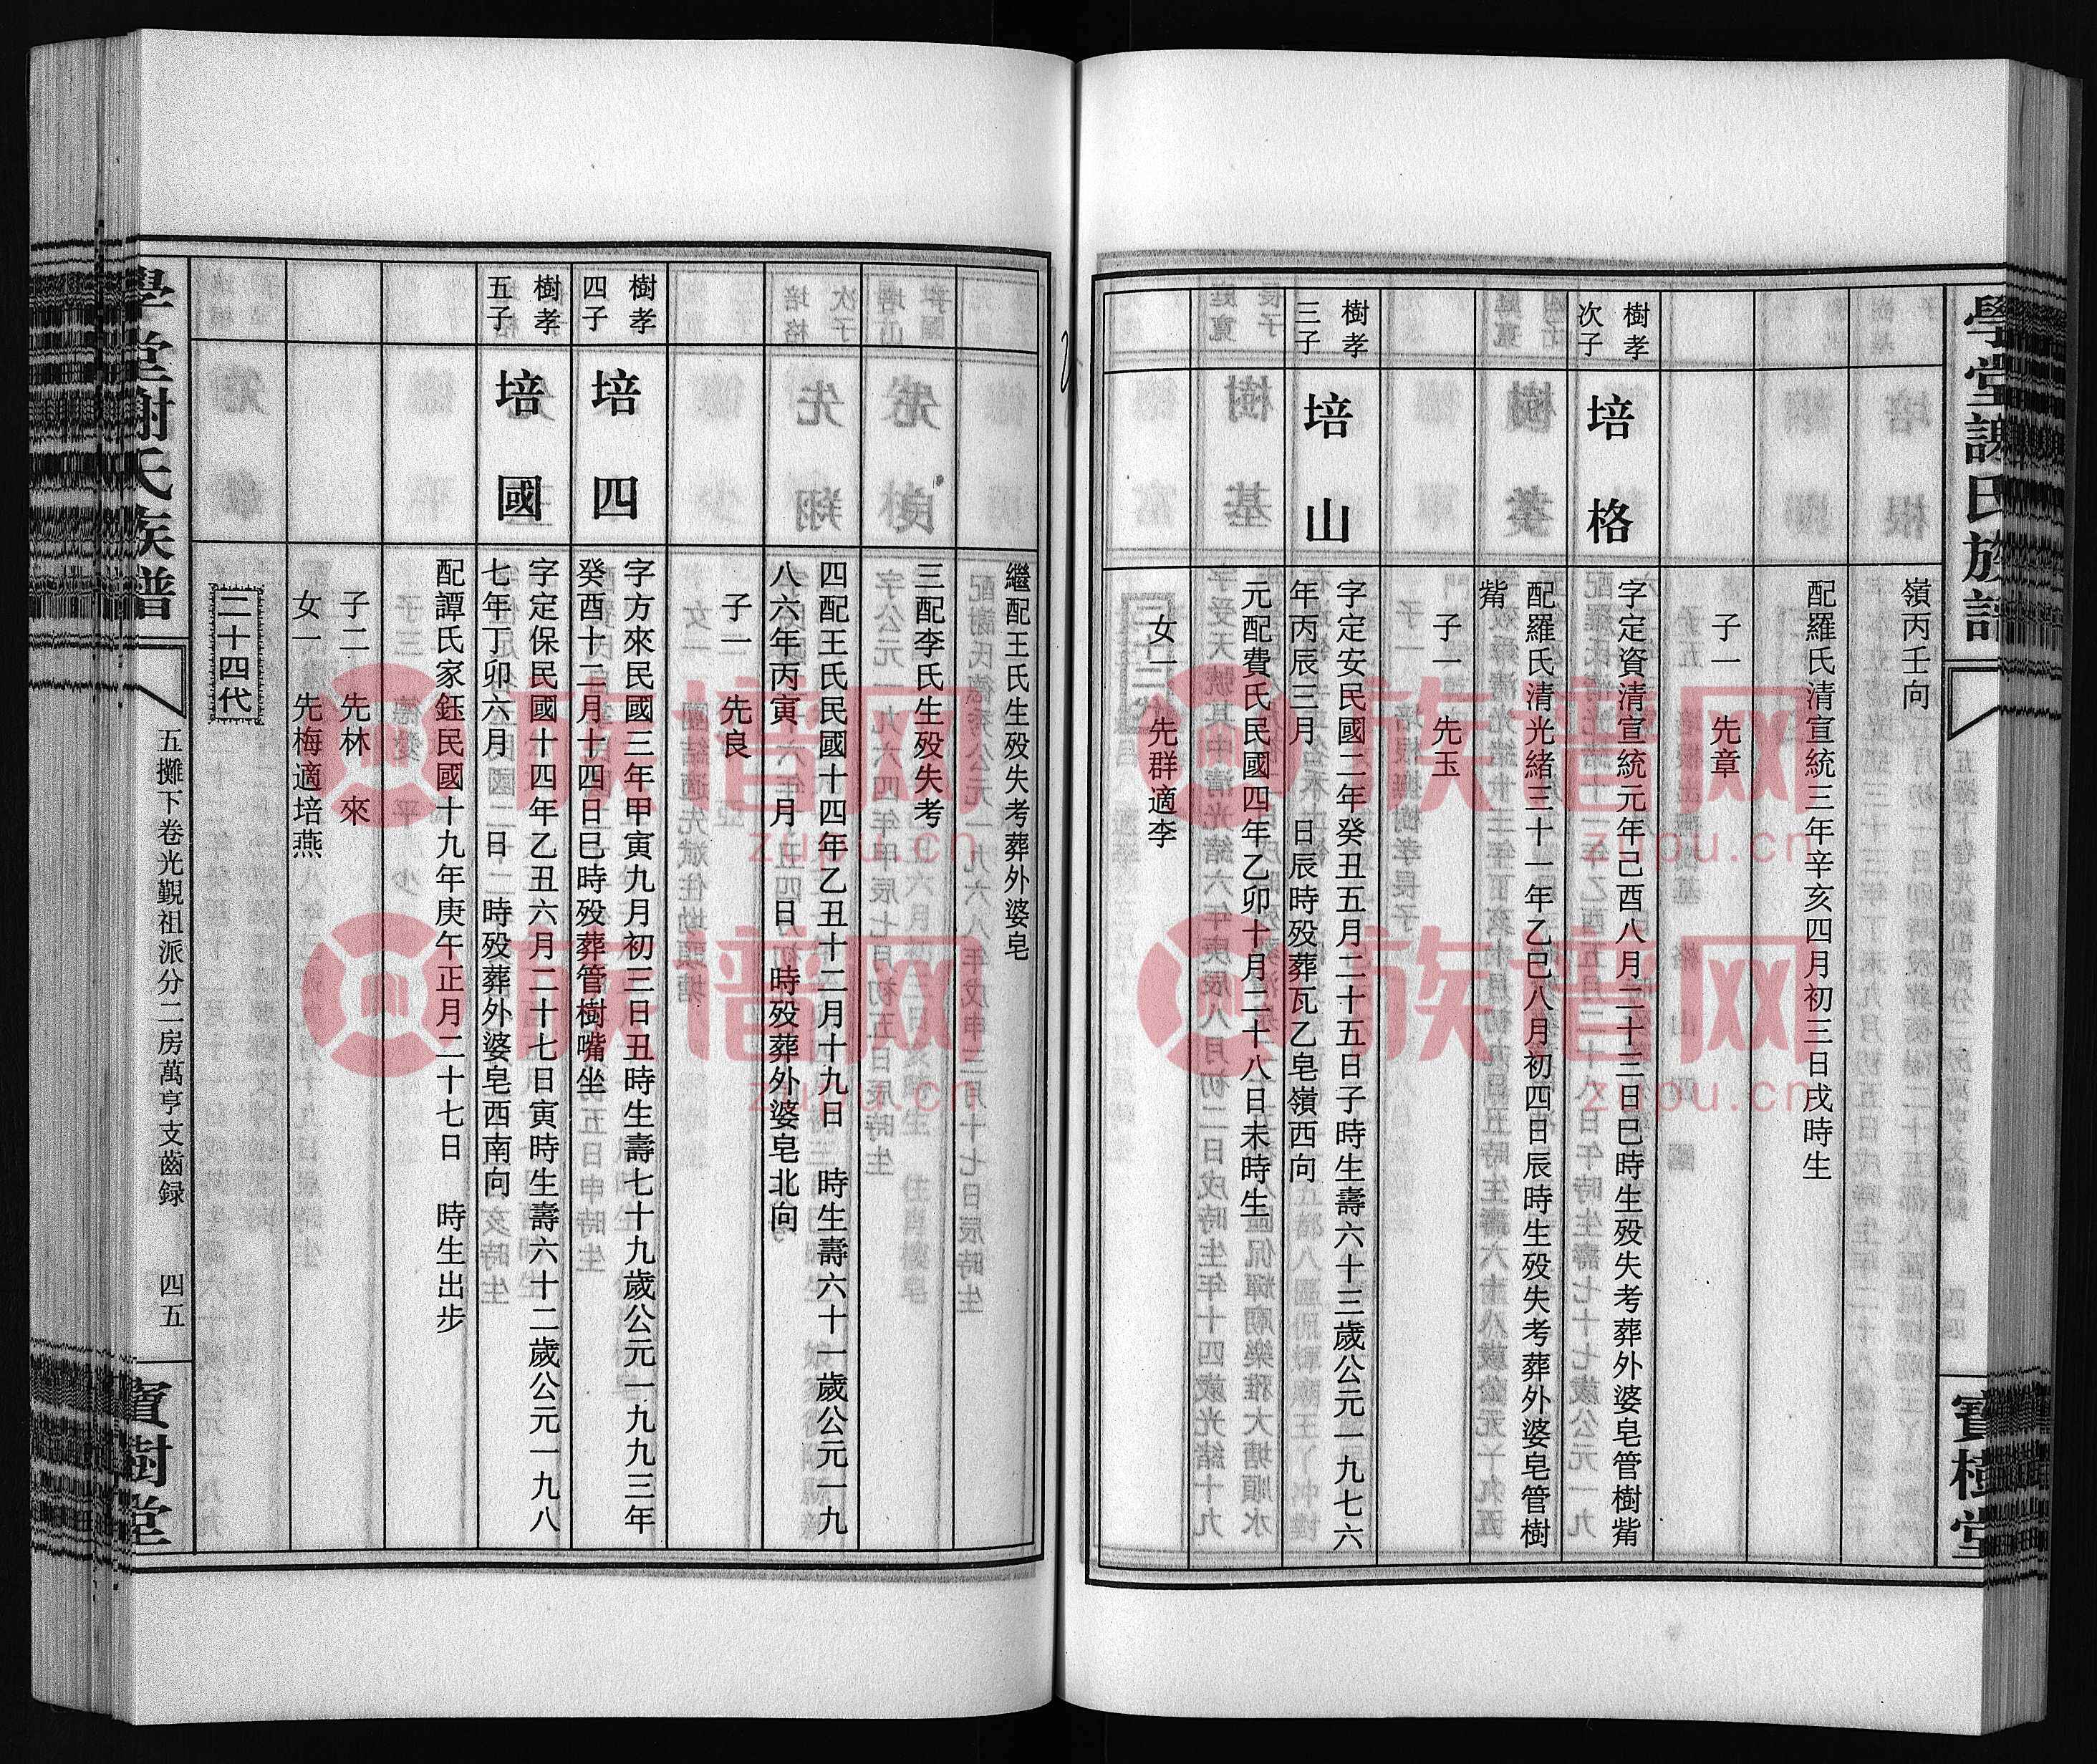 學堂謝氏族譜
寶樹堂
嶺丙壬向
配羅氏清宣統三年辛亥四月初三日戌時生
子一　先章
樹孝
次子
培格
字定資清宣統元年己酉八月二十三日巳時生殁失考葬外婆皂管樹觜
配羅氏清光緒三十一年乙巳八月初四日辰時生殁失考葬外婆皂管樹
觜
子一　先玉
樹孝
三子
培山
字定安民國二年癸丑五月二十五日子時生壽六十三歲公元一九七六
年丙辰三月　日辰時殁葬瓦乙皂嶺西向
元配費氏民國四年乙卯十月二十八日未時生
女一　先群適李
繼配王氏生殁失考葬外婆皂
三配李氏生殁失考
四配王氏民國十四年乙丑十二月十九日　時生壽六十一歲公元一九
八六年丙寅　月　日　時殁葬外婆皂北向
子一　先良
樹孝
四子
培四
字方來民國三年甲寅九月初三日丑時生壽七十九歲公元一九九三年
癸酉十二月十四日巳時殁葬管樹嘴坐
樹孝
五子
培國
字定保民國十四年乙丑六月二十七日寅時生壽六十二歲公元一九八
七年丁卯六月　日　時殁葬外婆皂西南向
配譚氏家鈺民國十九年庚午正月二十七日　時生出步
子二　先林　來
女一　先梅適培燕
二十四代
學堂謝氏族譜
五攤下卷光觀祖派分二房萬亨支齒録
四五
寶樹堂
族谱网
zupu.cn
族谱网
zupu.cn
族谱网
zupu.cn
族谱网
zupu.cn